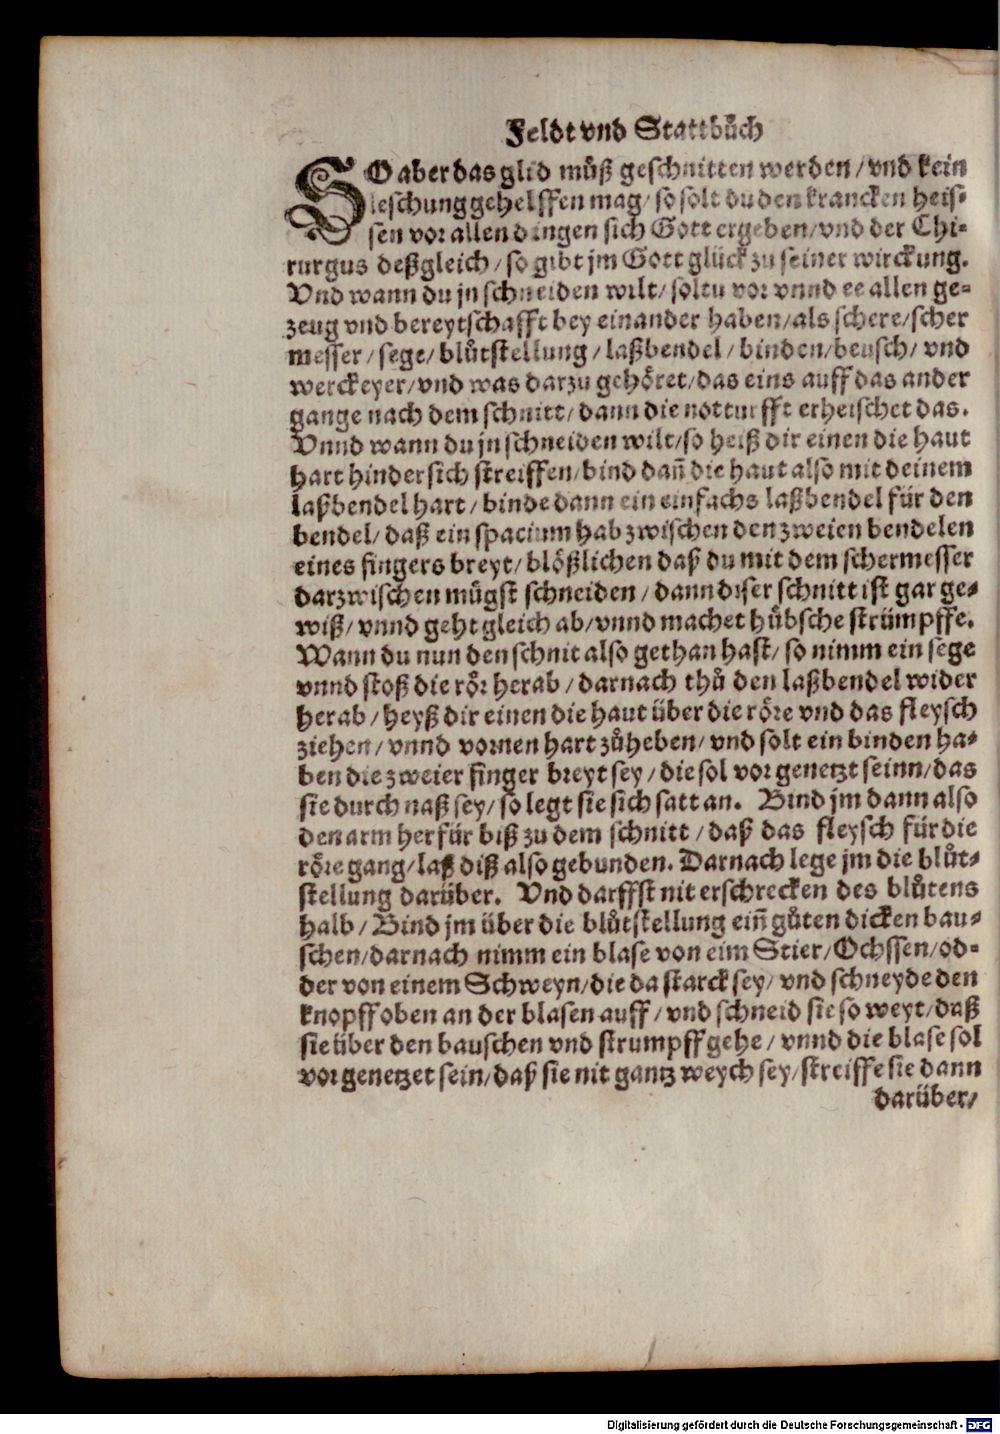 Feldt vnd Stattbůch
SO aber das glid můß geschnitten werden / vnd kein
leschung gehelffen mag / so solt du den krancken heis-
sen vor allen dingen sich Gott ergeben / vnd der Chi-
rurgus deßgleich / so gibt jm Gott glück zu seiner wirckung.
Vnd wann du jn schneiden wilt / soltu vor vnnd ee allen ge-
zeug vnd bereytschafft bey einander haben / als schere / scher
messer / sege / blůtstellung / laßbendel / binden / beusch / vnd
werckeyer / vnd was darzu gehöret / das eins auff das ander
gange nach dem schnitt / dann die notturfft erheischet das.
Vnnd wann du jn schneiden wilt / so heiß dir einen die haut
hart hindersich streiffen / bind dañ die haut also mit deinem
laßbendel hart / binde dann ein einfachs laßbendel für den
bendel / daß ein spacium hab zwischen den zweien bendelen
eines fingers breyt / blößlichen daß du mit dem schermesser
darzwischen mügst schneiden / dann diser schnitt ist gar ge-
wiß / vnnd geht gleich ab / vnnd machet hübsche strümpffe.
Wann du nun den schnit also gethan hast / so nimm ein sege
vnnd stoß die rör herab / darnach thů den laßbendel wider
herab / heyß dir einen die haut über die röre vnd das fleysch
ziehen / vnnd vornen hart zůheben / vnd solt ein binden ha-
ben die zweier finger breyt sey / die sol vor genetzt seinn / das
sie durch naß sey / so legt sie sich satt an. Bind jm dann also
den arm herfür biß zu dem schnitt / daß das fleysch für die
röre gang / laß diß also gebunden. Darnach lege jm die blůt-
stellung darüber. Vnd darffst nit erschrecken des blůtens
halb / Bind jm über die blůtstellung eiñ gůten dicken bau-
schen / darnach nimm ein blase von eim Stier / Ochssen / od-
der von einem Schweyn / die da starck sey / vnd schneyde den
knopff oben an der blasen auff / vnd schneid sie so weyt / daß
sie über den bauschen vnd strumpff gehe / vnnd die blase sol
vor genetzet sein / daß sie nit gantz weych sey / streiffe sie dann
darüber /
Digitalisierung gefördert durch die Deutsche Forschungsgemeinschaft - DFG